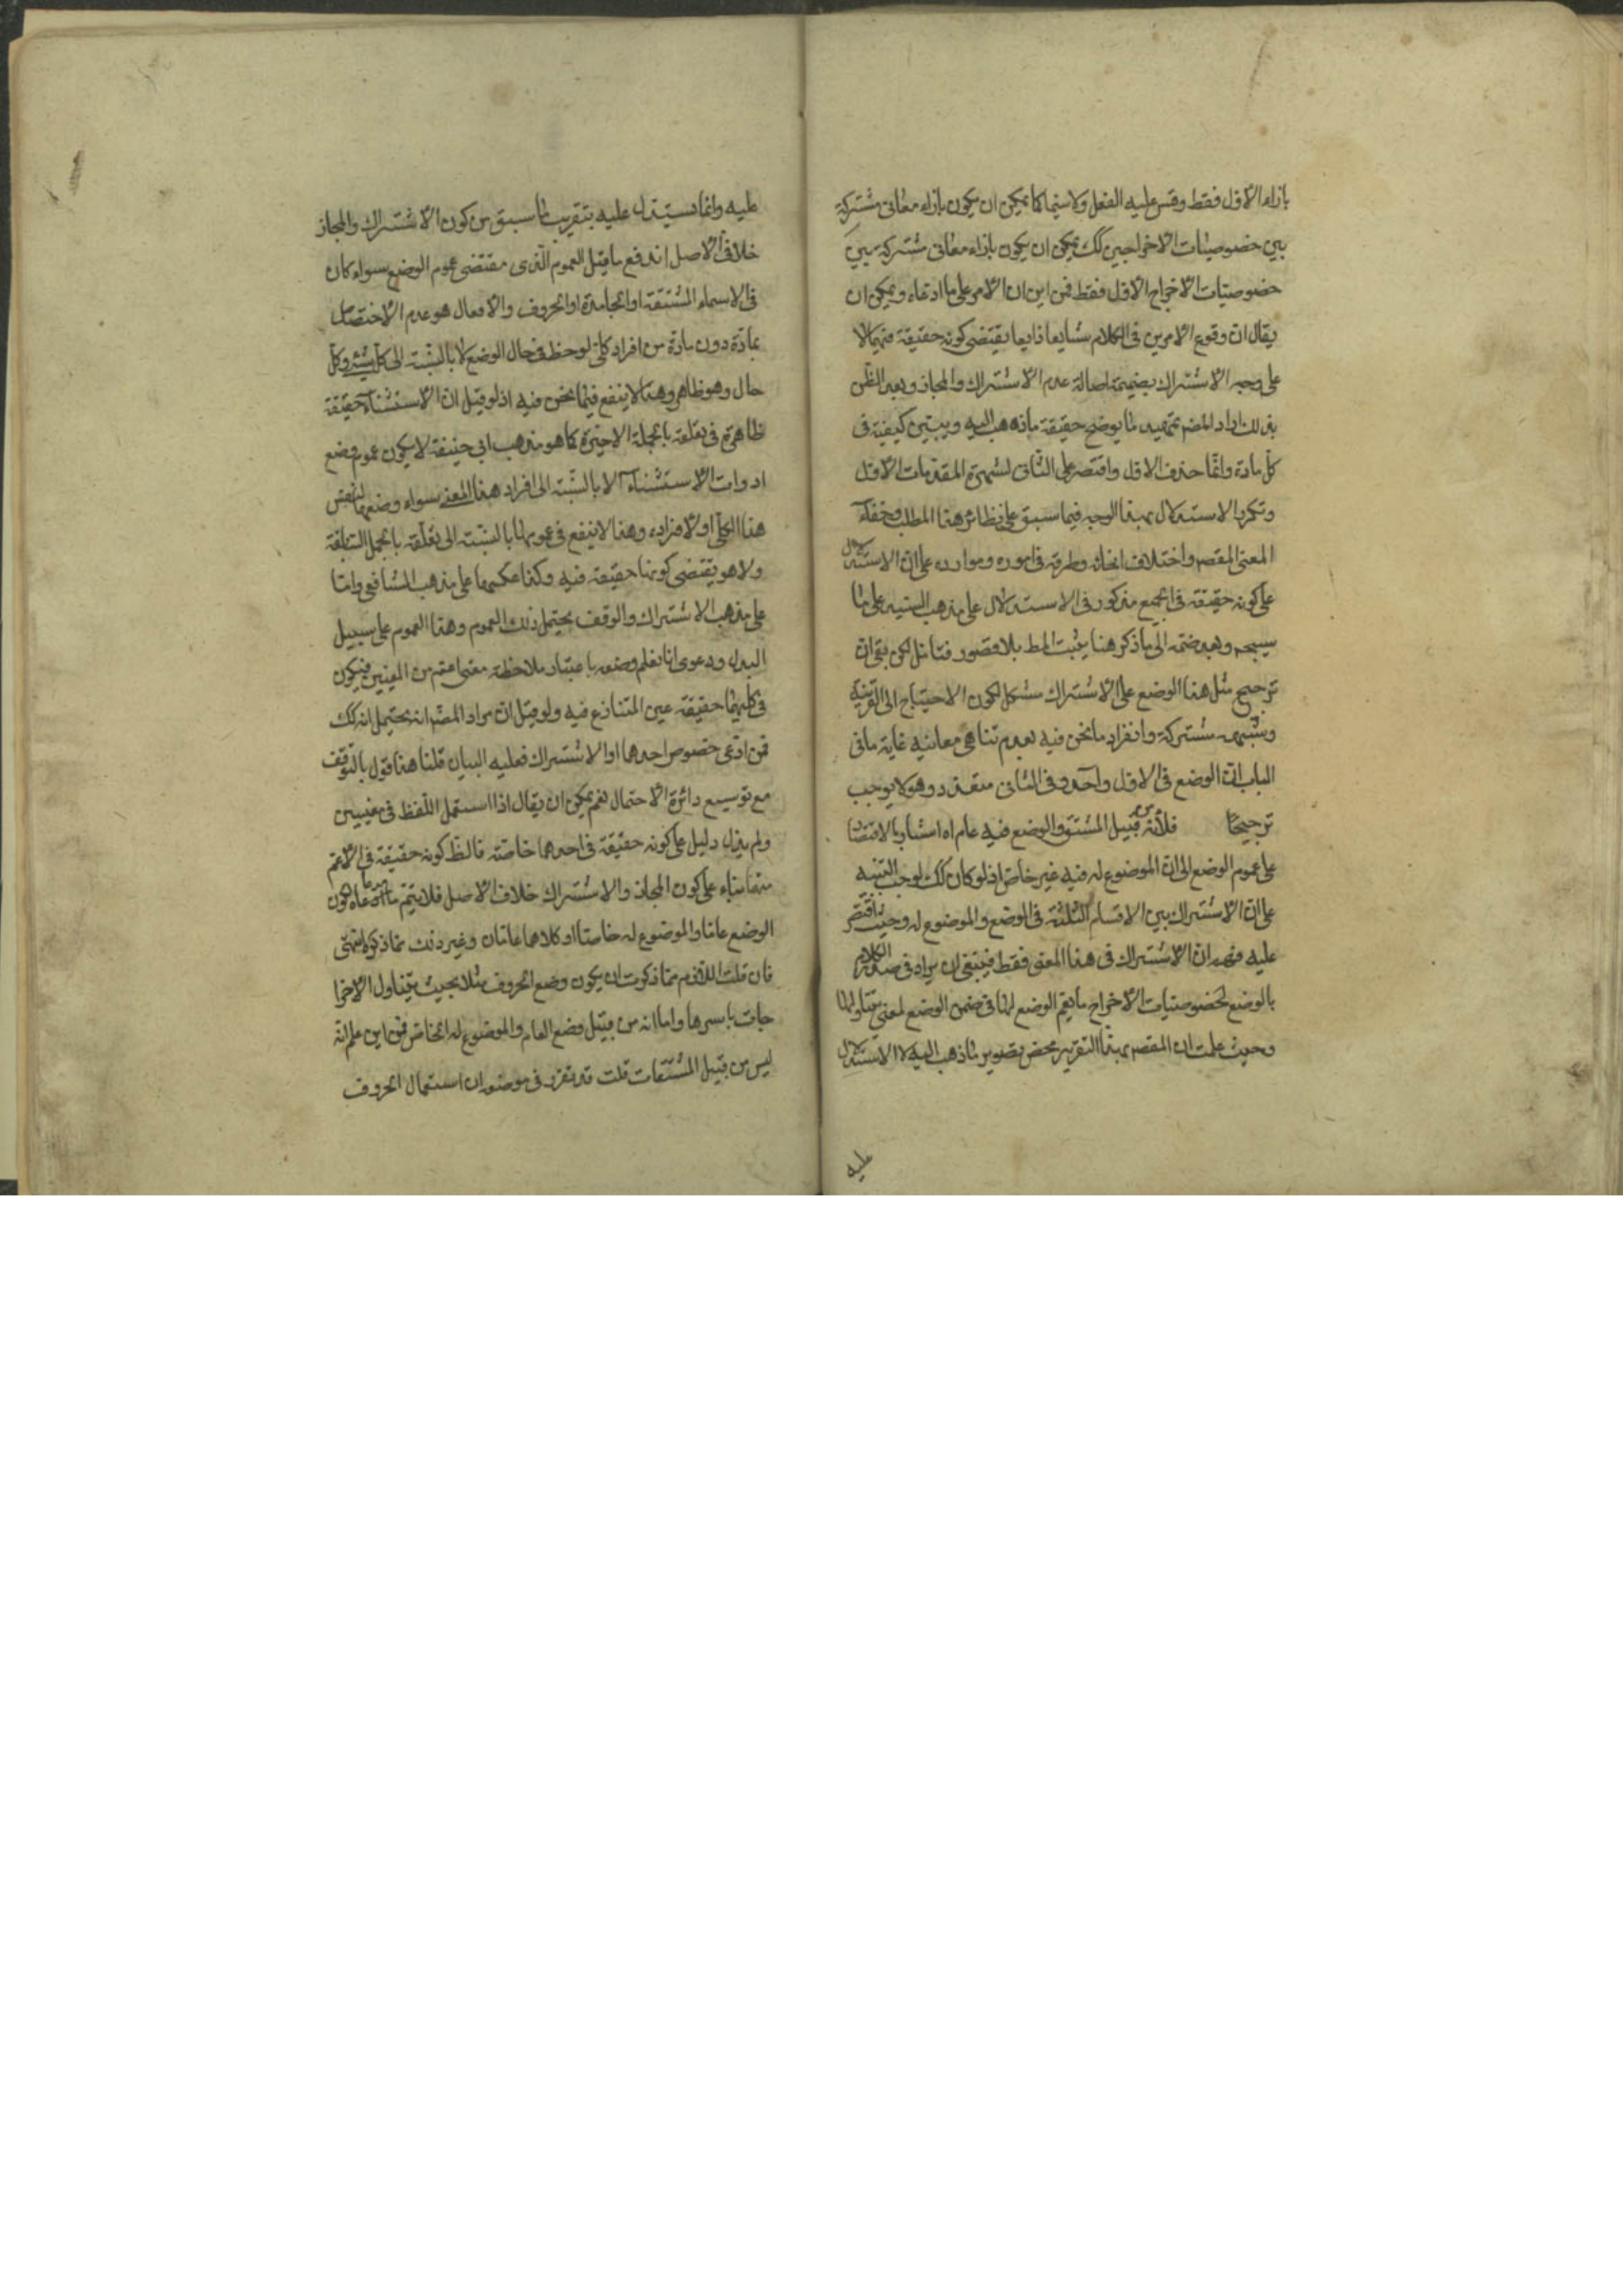 بازاء الاول فقط وقس عليه الفعل ولاسيما كما يمكن ان يكون بازاء معانى مشتركة
بين خصوصيات الاخراجين كك يمكن ان يكون بازاء معانى مشتركة بين
خصوصيات الاخراج الاول فقط فمن اين ان الامر على ما ادعاه ويمكن ان
يقال ان وقوع الامرين فى الكلام شايعا ذايعا يقتضى كونه حقيقة فيهما لا
على وجه الاشتراك بضميمة اصالة عدم الاشتراك والمجاز وبعد الظن
بذلك اراد المصم تمهيد لما يوضح حقيقة ما ذهب اليه ويبين كيفيته فى
كل مادة وانما حذف الاول واقتصر على الثانى لشهرة المقدمات الاول
وتكرر الاستدلال بهذا الوجه فيما سبق على نظائر هذا المطلب وخفاء
المعنى المقصم واختلاف انحائه وطرقه فى امور وموارده على ان الاستدلال
على كونه حقيقة فى الجميع مذكور فى الاستدلال على مذهب السيد على ما
سيجىء وبعد ضمه الى ما ذكر هنا يثبت المط بلا قصور فتامل لكن بقى ان
ترجيح مثل هذا الوضع على الاشتراك مشكل لكون الاحتياج الى القرينة
مشتركة وانفراد ما نحن فيه بعدم تناهى معانيه غاية ما فى
الباب ان الوضع فى الاول واحد وفى الثانى متعدد وهو لا يوجب
ترجيحا فلانه من قبيل المشتق والوضع فيه عام اه اشار بالاقتصار
على عموم الوضع الى ان الموضوع له فيه غير خاص اذ لو كان كك لوجب التنبيه
على ان الاشتراك بين الاقسام الثلثة فى الوضع والموضوع له وحيث اقتصر
عليه فهم ان الاشتراك فى هذا المعنى فقط فينبغى ان يراد فى صدر الكلام
بالوضع لخصوصيات الاخراج ما يعم الوضع لها فى ضمن الوضع لمعنى يتناولها
وحيث علمت ان المقصم بهذا التقرير محض تصوير ما ذهب اليه لا الاستدلال
عليه
عليه وانما يستدل عليه بتقريب ما سبق من كون الاشتراك والمجاز
خلاف الاصل اندفع ما قيل العموم الذى مقتضى عموم الوضع سواء كان
فى الاسماء المشتقة او الجامدة او الحروف والافعال هو عدم الاختصاص
بمادة دون مادة من افراد كلى لوحظ فى حال الوضع لا بالنسبة الى كل شىء وكل
حال وهو ظاهر وهذا لا ينفع فيما نحن فيه اذ لو قيل ان الاستثناء حقيقة
ظاهرة فى تعلقه بالجملة الاخيرة كما هو مذهب ابى حنيفة لا يكون عموم وضع
ادوات الاستثناء الا بالنسبة الى افراد هذا المعنى سواء وضعها لنفس
هذا الكلى او لافراده وهذا لا ينفع فى عمومها بالنسبة الى تعلقه بالجمل السابقة
ولا هو يقتضى كونها حقيقة فيه وكذا عكسهما على مذهب الشافعى واما
على مذهب الاشتراك والوقف يحتمل ذلك العموم وهذا العموم على سبيل
البدل ودعوى انا نعلم وضعه باعتبار ملاحظة معنى اعم من المعنيين فيكون
فى كليهما حقيقة عين المتنازع فيه ولو قيل ان مراد المصم انه يحتمل انه كك
فمن ادعى خصوص احدهما او الاشتراك فعليه البيان قلنا هذا قول بالتوقف
مع توسيع دائرة الاحتمال نعم يمكن ان يقال اذا استعمل اللفظ فى معنيين
ولم يدل دليل على كونه حقيقة فى احدهما خاصة فالظ كونه حقيقة فى الاعم
منهما بناء على كون المجاز والاشتراك خلاف الاصل فلا يتم ما ادعاه من كون
الوضع عاما والموضوع له خاصا او كلاهما عامان وغير ذلك مما ذكره انتهى
فان قلت اللازم مما ذكرت ان يكون وضع الحروف مثلا بحيث يتناول الاخرا
جات باسرها واما انه من قبيل وضع العام والموضوع له الخاص فمن اين علم انه
ليس من قبيل المشتقات قلت قد تقرر فى موضعه ان استعمال الحروف